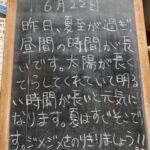 6月22日
昨日、夏至が過ぎ
昼間の時間が長
いです。太陽が長く
てらしてくれていて明る
い時間が長いと元気に
なります。夏はすぐそこで
す。ジメジメさのりきりましょう!!